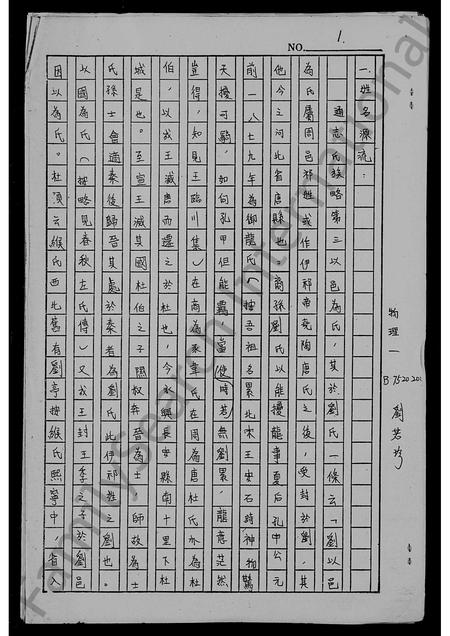 NO. 1.
一、姓名源流:
通志氏族略第三以邑為氏,其於劉氏一條云「劉以邑
為氏屬周邑祁姓或作伊祁帝堯陶唐氏之後,受封於劉,其
他今之河北省唐縣也商孫劉氏以能擾龍事夏后孔甲公元
前一八七九年為御龍氏按吾祖名累北宋王安石詩神物驚
天擾可馴,如何孔甲但能羈當使時若無劉累,龍意茫然
豈得,知見王臨川集)在商為豕韋氏在周為唐杜氏亦為杜
伯,以成王滅唐而遷之於杜也,今永興長安縣南十里下杜
城是也。至宣王滅其國杜伯之子隰叔奔晉為士師故為士
氏孫士會適秦後歸晉其處於秦者為劉氏此伊祁姓之劉也。
以國為氏(按略見春秋左氏傳)又成王封王季之子於劉邑
因以為氏。杜預云緱氏西北舊有劉亭按緱氏熙寧中,省入
物理一
B 7520201
劉若
FamilySearch International